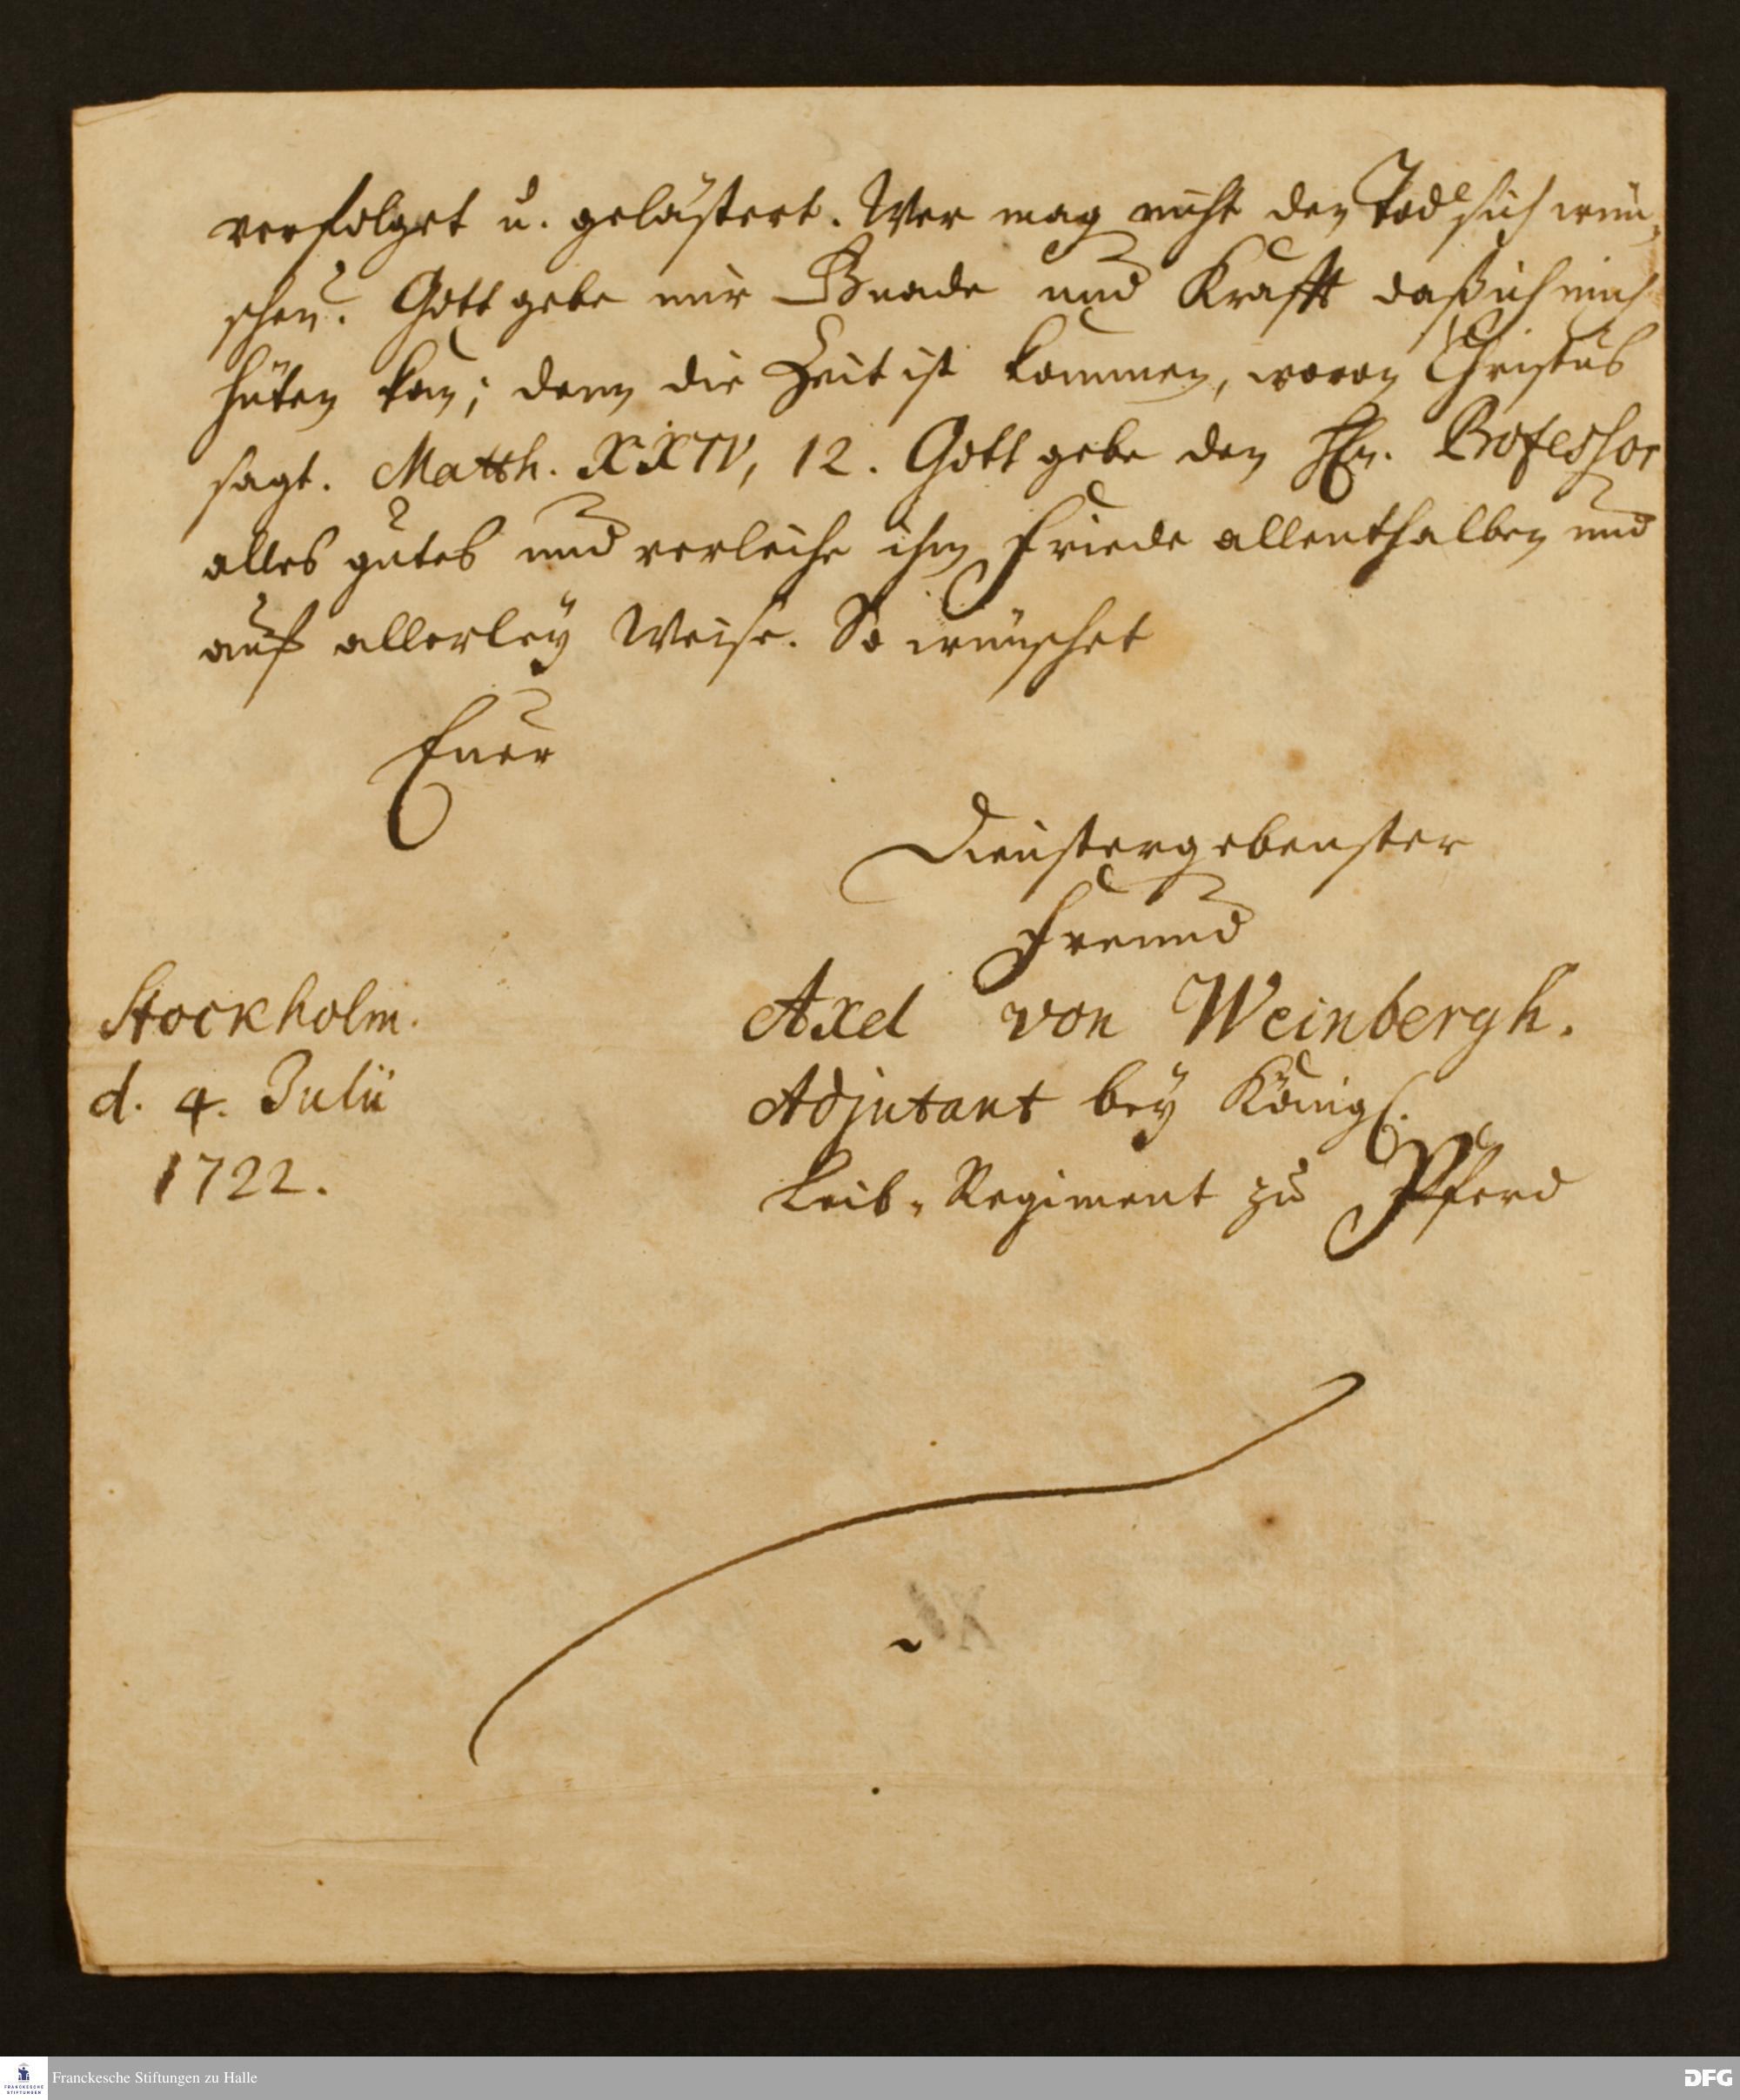 verfolget u. gelästert. Wer mag nicht den Tod sich wün-
schen? Gott gebe mir Gnade und Krafft daß ich mich
hüten kan; denn die Zeit ist kommen, wovon Christus
sagt. Matth. XXIV, 12. Gott gebe den HEn. Professor
alles gutes und verleihe ihm Friede allenthalben und
auf allerley Weise. So wünschet
Euer
Dienstergebenster
Freund
Stockholm.
d. 4. Julii
1722.
Axel von Weinbergh.
Adjutant bey Königl.
Leib-Regiment zu Pferd
Franckesche Stiftungen zu Halle
FRANCKESCHE
STIFTUNGEN
DFG